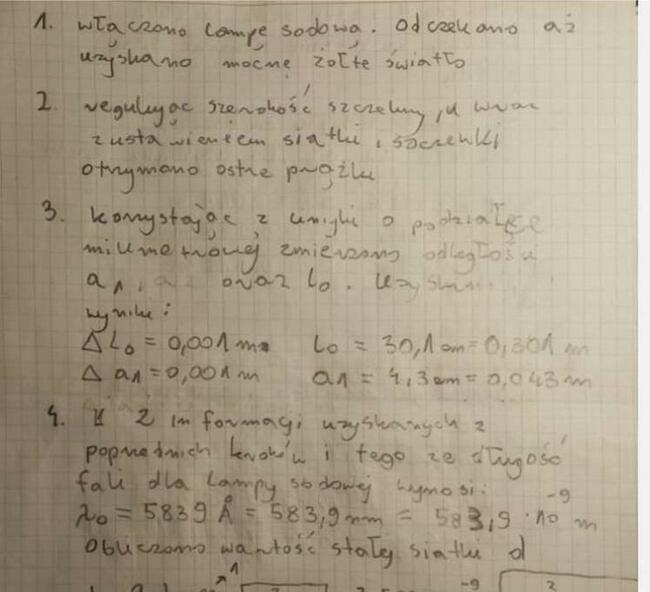 1. włączono lampę sodową. Odczekano aż
uzyskano mocne żółte światło
2. regulując szerokość szczeliny, w wraz
z ustawieniem siatki i soczewki
otrzymano ostre prążki
3. korzystając z linijki o podziałce
milimetrowej zmierzono odległości
a1, oraz lo. Uzyskano
wyniki:
Δ Lo = 0,001 m lo = 30,1 cm = 0,301 m
Δ a1 = 0,001 m a1 = 4,3 cm = 0,043 m
4. Z informacji uzyskanych z
poprzednich kroków i tego że długość
fali dla lampy sodowej wynosi:
λo = 5839 Å = 583,9 nm = 583,9 · 10⁻⁹ m
Obliczono wartość stałej siatki d